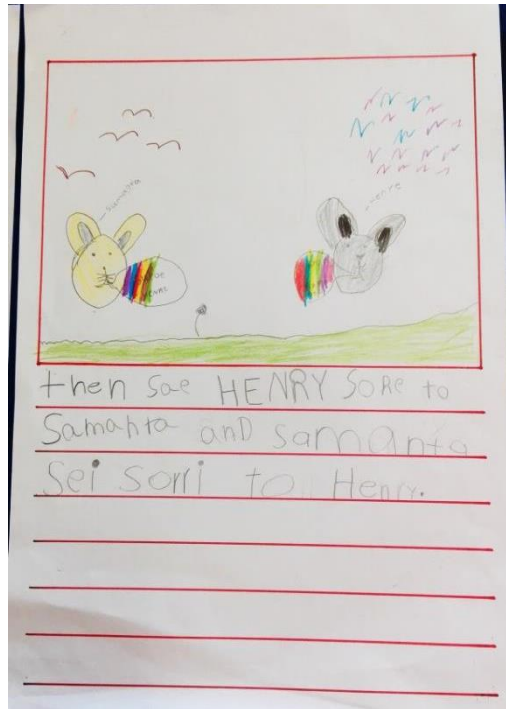 samanta
Henre
then sae HENRY SORe to
Samahta and samanta
Sei sorri to Henry.